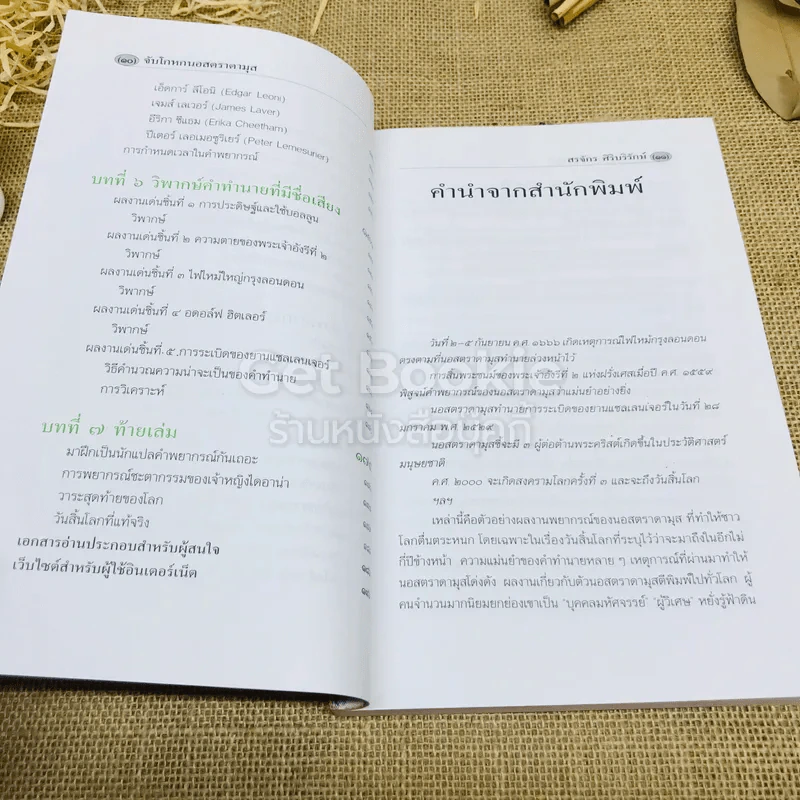 (๑๐) จับโกหกนอสตราดามุส
เอ็ดการ์ ลีโอนี (Edgar Leoni)
เจมส์ เลเวอร์ (James Laver)
อีริกา ชีแธม (Erika Cheetham)
ปีเตอร์ เลอเมอซูริเยร์ (Peter Lemesurier)
การกำหนดเวลาในคำพยากรณ์
บทที่ ๖ วิพากษ์คำทำนายที่มีชื่อเสียง
ผลงานเด่นชิ้นที่ ๑ การประดิษฐ์และใช้บอลลูน
วิพากษ์
ผลงานเด่นชิ้นที่ ๒ ความตายของพระเจ้าอังรีที่ ๒
วิพากษ์
ผลงานเด่นชิ้นที่ ๓ ไฟไหม้ใหญ่กรุงลอนดอน
วิพากษ์
ผลงานเด่นชิ้นที่ ๔ อดอล์ฟ ฮิตเลอร์
วิพากษ์
ผลงานเด่นชิ้นที่ ๕ การระเบิดของยานแชลเลนเจอร์
วิธีคำนวณความน่าจะเป็นของคำทำนาย
การวิเคราะห์
บทที่ ๗ ท้ายเล่ม
มาฝึกเป็นนักแปลคำพยากรณ์กันเถอะ
การพยากรณ์ชะตากรรมของเจ้าหญิงไดอาน่า
วาระสุดท้ายของโลก
วันสิ้นโลกที่แท้จริง
เอกสารอ่านประกอบสำหรับผู้สนใจ
เว็บไซต์สำหรับผู้ใช้อินเตอร์เน็ต
สรจักร ศิริบริรักษ์ (๑๑)
คำนำจากสำนักพิมพ์
วันที่ ๒-๕ กันยายน ค.ศ. ๑๖๖๖ เกิดเหตุการณ์ไฟไหม้กรุงลอนดอน
ตรงตามที่นอสตราดามุสทำนายล่วงหน้าไว้
การสิ้นพระชนม์ของพระเจ้าอังรีที่ ๒ แห่งฝรั่งเศสเมื่อปี ค.ศ. ๑๕๕๙
พิสูจน์คำพยากรณ์ของนอสตราดามุสว่าแม่นยำอย่างยิ่ง
นอสตราดามุสทำนายการระเบิดของยานแชลเลนเจอร์ในวันที่ ๒๘
มกราคม พ.ศ. ๒๕๒๙
นอสตราดามุสชี้จะมี ๓ ผู้ต่อต้านพระคริสต์เกิดขึ้นในประวัติศาสตร์
มนุษยชาติ
ค.ศ. ๒๐๐๐ จะเกิดสงครามโลกครั้งที่ ๓ และจะถึงวันสิ้นโลก
ฯลฯ
เหล่านี้คือตัวอย่างผลงานพยากรณ์ของนอสตราดามุส ที่ทำให้ชาว
โลกตื่นตระหนก โดยเฉพาะในเรื่องวันสิ้นโลกที่ระบุไว้ว่าจะมาถึงในอีกไม่
กี่ปีข้างหน้า ความแม่นยำของคำทำนายหลาย ๆ เหตุการณ์ที่ผ่านมาทำให้
นอสตราดามุสโด่งดัง ผลงานเกี่ยวกับตัวนอสตราดามุสตีพิมพ์ไปทั่วโลก ผู้
คนจำนวนมากนิยมยกย่องเขาเป็น "บุคคลมหัศจรรย์" "ผู้วิเศษ" หยั่งรู้ฟ้าดิน
Get Bookie
ร้านหนังสือผู้ถูก